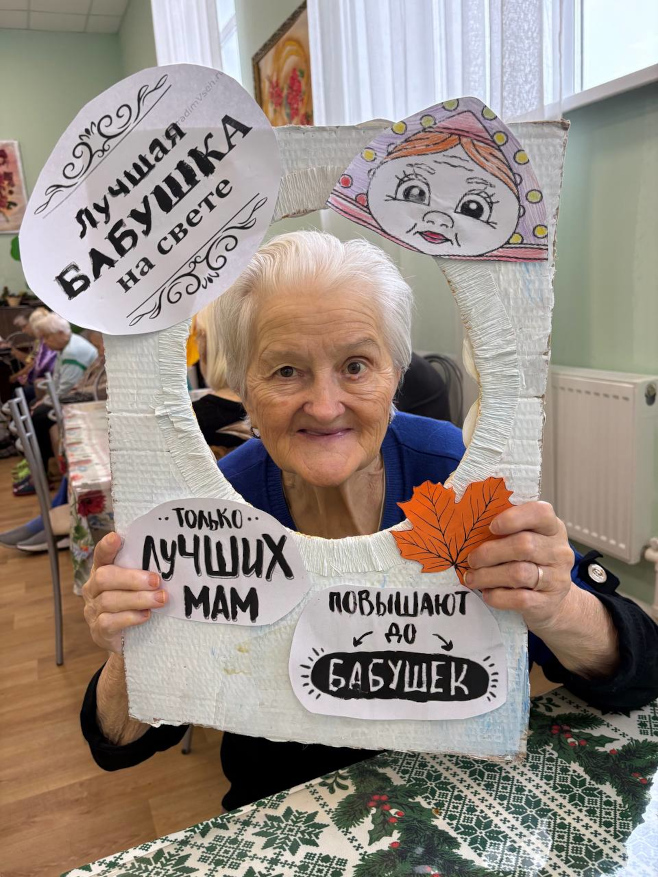 Лучшая
БАБУШКА
на свете
ТОЛЬКО
ЛУЧШИХ
МАМ
ПОВЫШАЮТ
ДО
БАБУШЕК